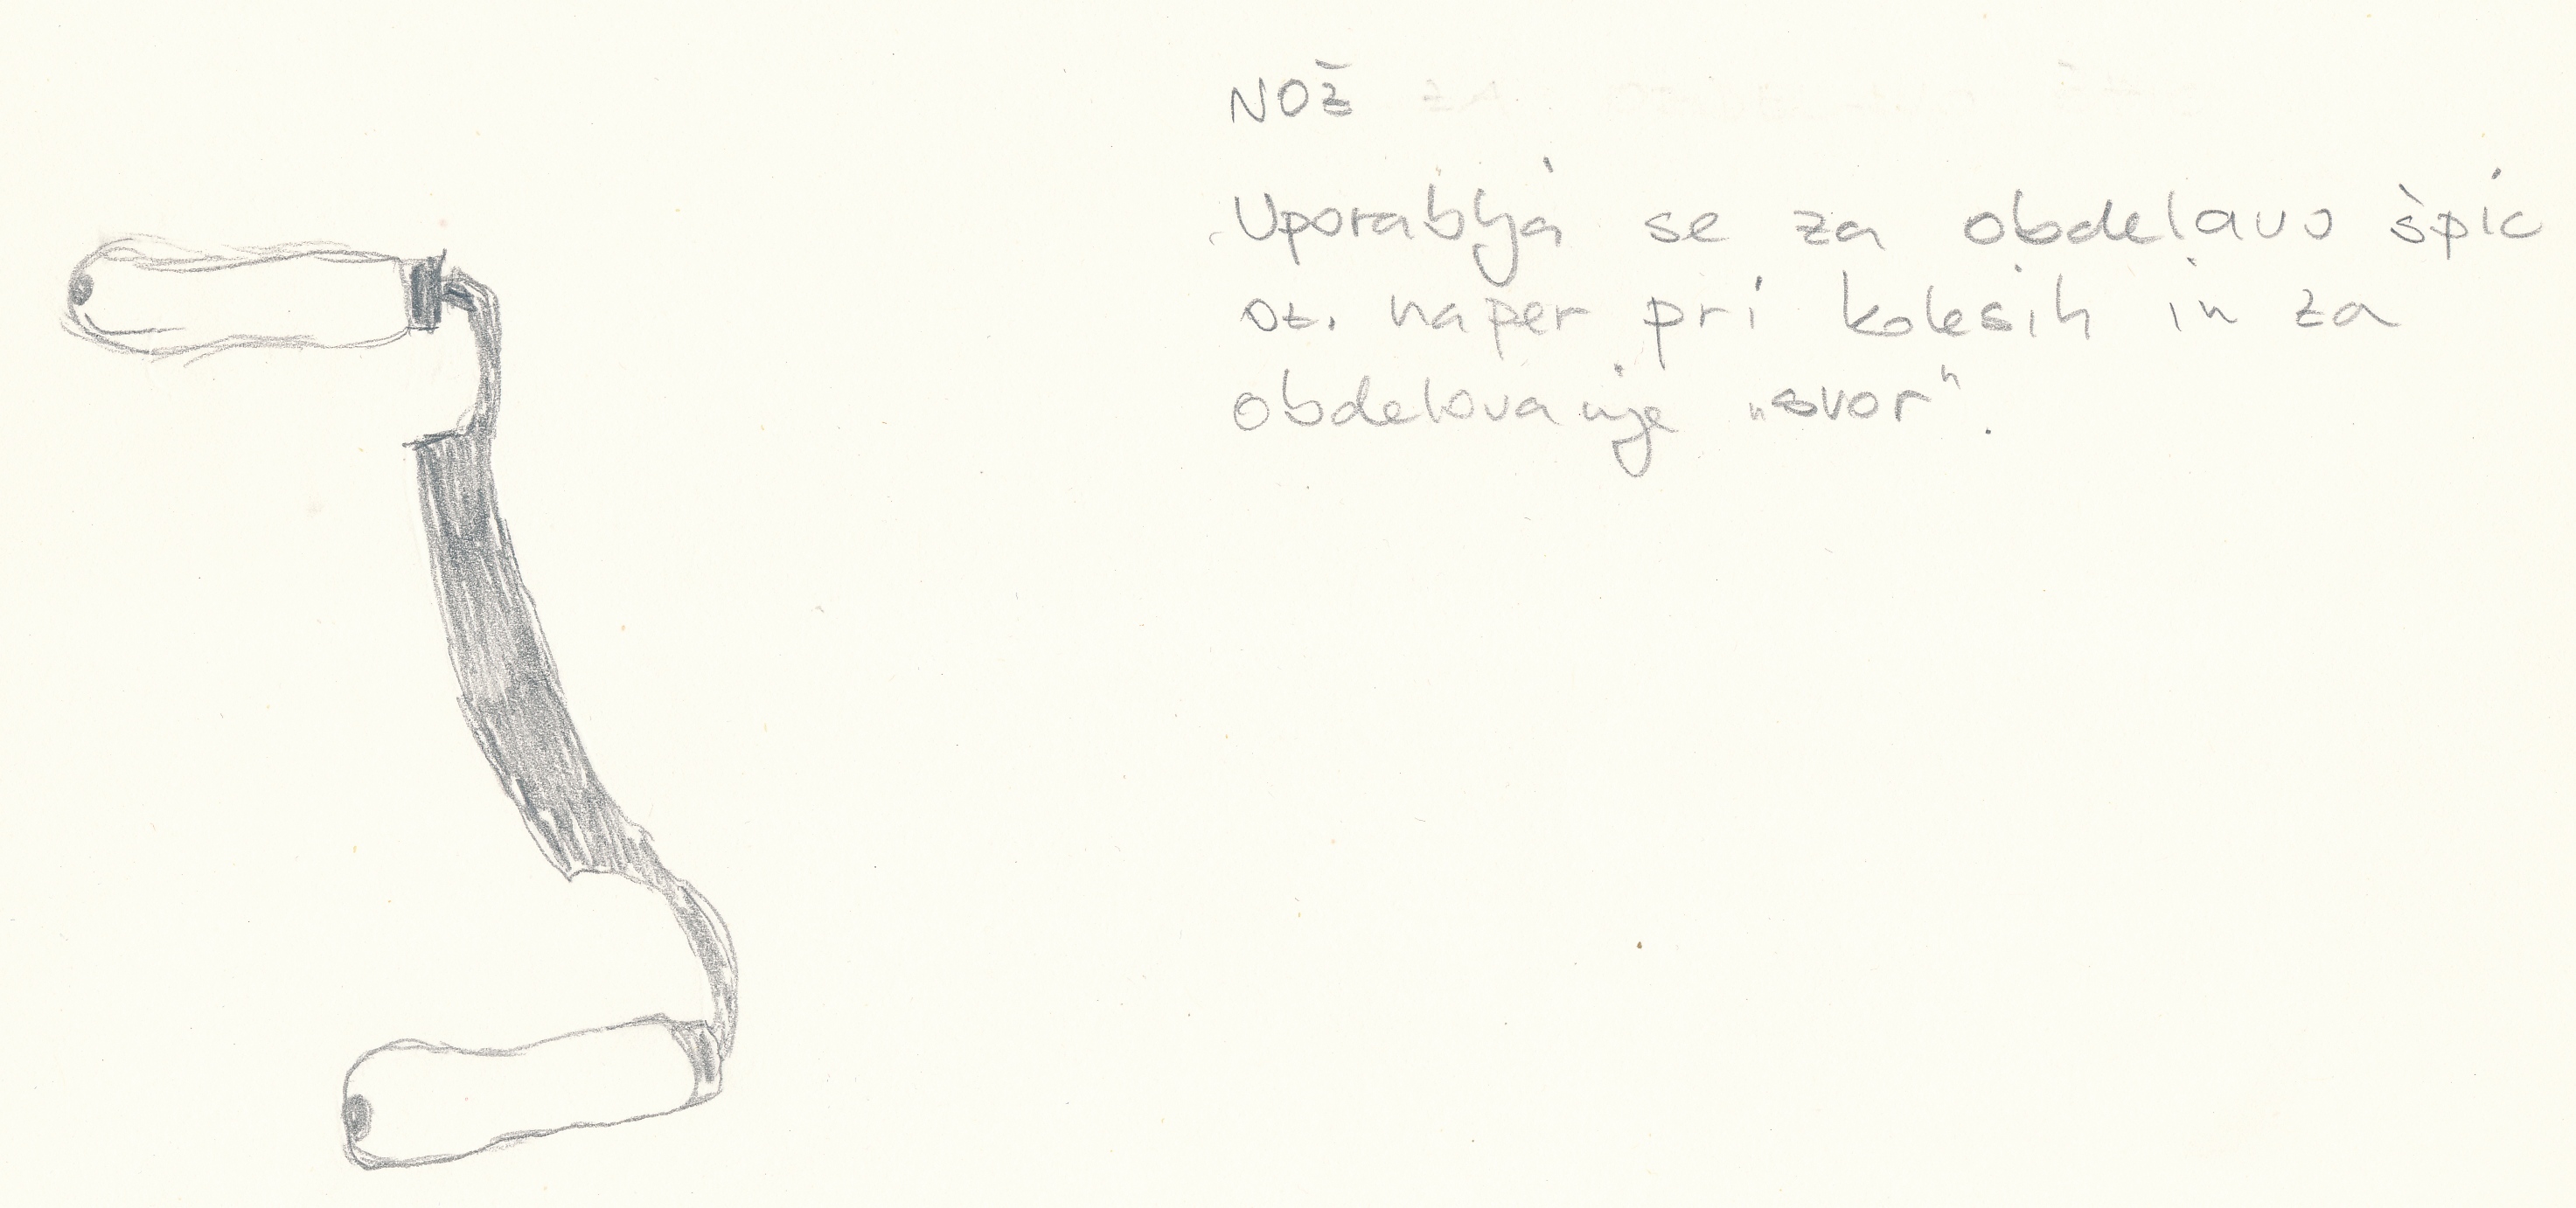 NOŽ
Uporablja se za obdelavo špic
oz. naper pri kolesih in za
obdelovanje "svor".